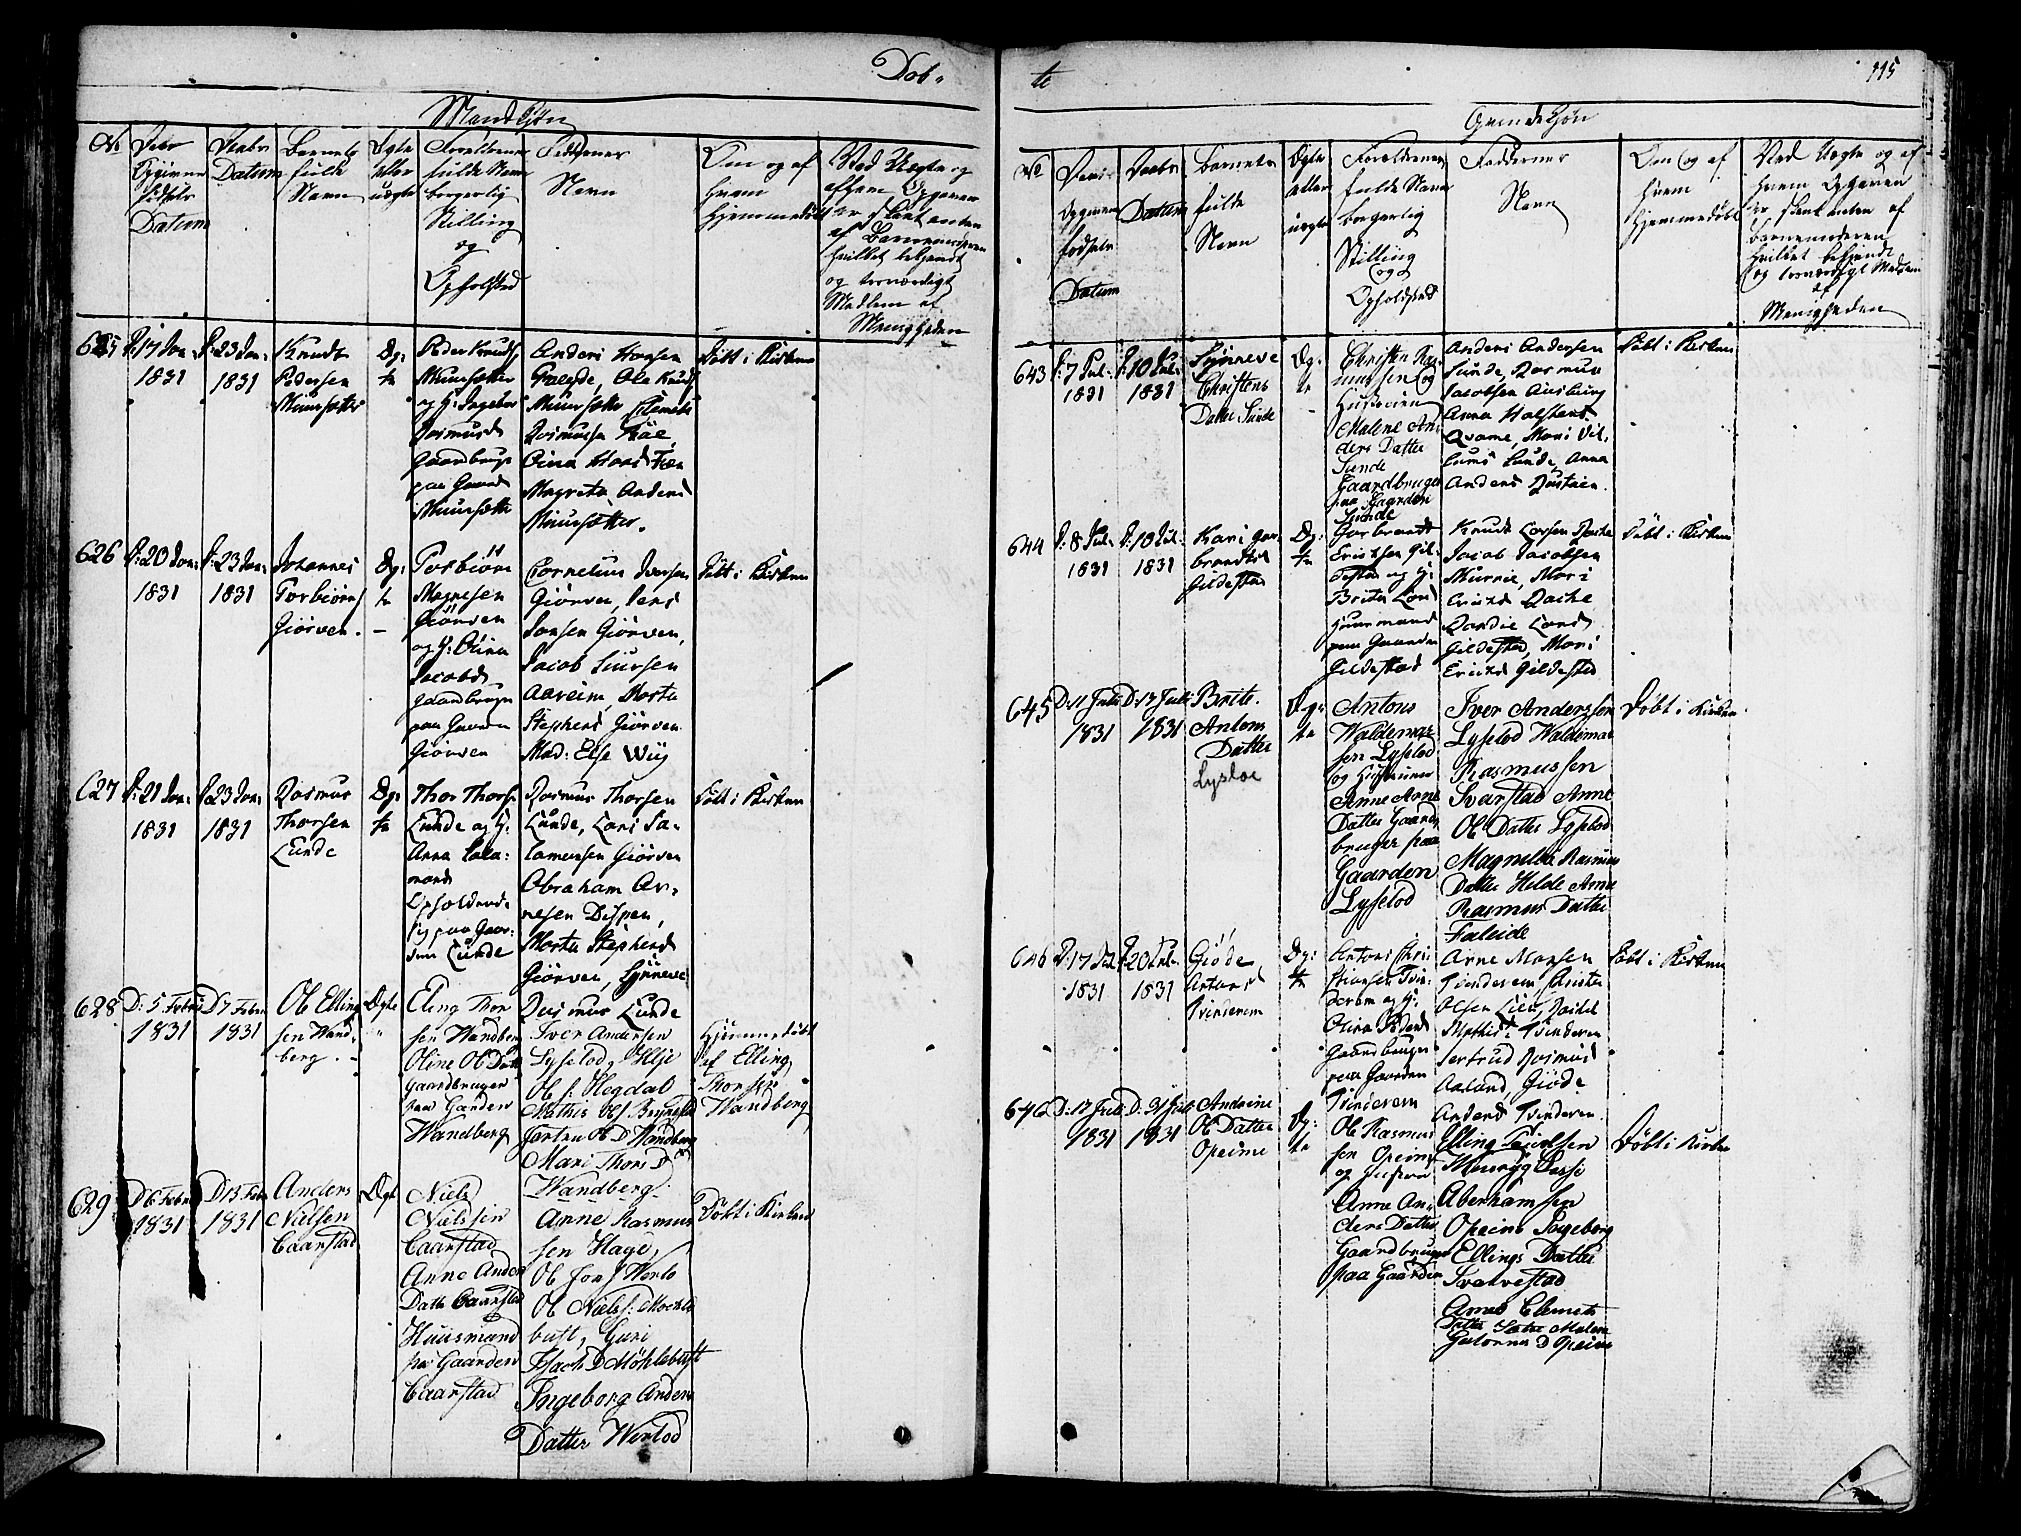 Døb-
te
115
Mandkjøn
Qvindekjøn
No
Datum
Barnets
fulde
Navn
Ægte
eller
uægte
Forældrenes
fulde Navn
borgerlig
Stilling
og
Opholsted
Faddernes
Navn
Om og af
hvem
hjemmedøbt
Ved Uægte og
og troværdigt
Medlem af
Menigheden
625
D: 17 Jan:
1831
D: 23 Jan:
1831
Knudt
Pedersen
Muursætter
Æg:
te
Peder Knuds
Muursætter
og H: Ingebor
Rasmusd
Gaardbruger
paa Gaard
Muursætter
Anders Hansen
Faleyde, Ole Knuds
Muursætter Clemet
Rasmussen
Oina Hans
Magreta Anders
Muursætter.
Døbt i Kirken
626
D: 20 Jan:
1831
D: 23 Jan:
1831
Johannes
Torbiørns
Giørven.
Æg:
te
Torbiørn
Magnesen
Giørven
og H: Olina
Jacobd
Gaardbruger
paa Gaarden
Giørven
Cornelius Iversen
Giørven, Jens
Jansen Giørven,
Jacob Siursen
Aareim, Marta
Stephens Giørven
Mad: Else Wiig
Døbt i Kirken
627
D: 21 Jan:
1831
D: 23 Jan:
1831
Rasmus
Thorsen
Lunde
Æg:
te
Thor Thors
Lunde og H:
Anna Sala-
mons
Opholdende
sig paa Gaar-
den Lunde
Rasmus Thorsen
Lunde, Lars Sa-
lamonsen Giørven
Abraham Ar-
nesen Dispen,
Marta Stephens
Giørven, Synneve
Rasmus Lunde
Døbt i Kirken
628
D: 5 Febr
1831
D 7 Febr
1831
Ole Elling
sen Wand-
berg.
Ægte
Eling Thor
sen Wandberg
Oline Ols Datt
Gaardbruger
paa Gaarden
Wandberg
Iver Andersen
Lyselod, Ilje
Ols: Hegdal
Mathis Ols Brynestad
Jertru Ols D Wandberg
Mari Thors D
Wandberg
Hjemmedøbt
af Elling
Thorsen
Wandberg
629
D 6 Febr
1831
D 13 Febr
1831
Anders
Nielsen
Caarstad
Ægt
Niels
Nielssen
Caarstad
Anne Anders
Datte Caarstad
Huusmand
paa Gaarden
Caarstad
Anne Rasmus
sen Hage,
Ole Jons Werlo
Ole Niels: Mockle
bust, Guri
Isach D Mohlebust
Ingeborg Anders
Datter Werlod
Døbt i Kirken
No
Datum
Datum
Barnets
fulde
Navn
Ægte
eller
uægte
Forældrenes
fulde Navn
borgerlig
Stilling
og
Opholdsted
Faddernes
Navn
Om og af
hvem
hjemmedøbt
Ved Uægte og af
hvem Opgaven
er skeet enten af
Barnemoderen
hvilket bekjendt
og troværdigt Medlem
af
Menigheden
643
D: 7 Jul:
1831
D: 10 Jul:
1831
Synneve
Christens
Datte Sunde
Æg:
te
Christen Ras
mussen og
Hustruen
Malene An-
ders Datter
Sunde
Gaardbruger
paa Gaarden
Sunde
Anders Andersen
Sunde, Rasmus
Jacobsen Auslung
Anna Halstens
Qvame, Mari Vil-
lums Sunde, Anna
Anders
Døbt i Kirken
644
D: 8 Jul:
1831
D: 10 Jul:
1831
Kari Gar
brandts
Gildestad
Æg:
te
Garbrandt
Ericksen Gil-
destad og H:
Brita Lars
Huusmand
paa Gaarden
Gildestad
Knudt Larsen Rache
Jacob Jacobsen
Murrie, Mari
Ericks Rache
Randie Lars
Gildestad, Mari
Ericks Gildestad
Døbt i Kirken
645
D: 11 Juli
1831
D: 17 Juli
1831
Brite
Antons
Datter
Lysloe
Æg:
te
Antons
Waldemar
sen Lyselod
og Hustruen
Anne Arne
Datter Gaard
bruger paa
Gaarden
Lyselod
Iver Anderssen
Lyselod Waldemar
Rasmussen
Svarstad Anne
Ols Datter Lyselod
Magnelde Rasmus
Datter Helde Anne
Rasmus Datter
Faleide
Døbt i Kirken
646
D: 17 Jul:
1831
D: 20 Jul:
1831
Giøde
Antons
Tvinderem
Æg:
te
Antoni Chri
stiansen Tvin
derem og H:
Olina Peders
Gaardbruger
paa Gaarden
Tvinderem
Arne Monsen
Tvinderem, Christen
Olsen Lien, Rachel
Mathis: Tvinderem
Jertrud Rasmus
Aaland, Giøde
Anders Tvinderem.
Døbt i Kirken
646
D: 17 Juli
1831
D: 31 Juli
1831
Andrine
Ols Datter
Opeime
Æg:
te
Ole Rasmus
sen Opeim
og Hustru
Anne An-
ders Datter
Gaardbruger
paa Gaarden
Elling
Aberhamsen
Opeims Ingeborg
Ellings Datter
Svarvestad
Anne Clemets
Datter
Døbt i Kirken